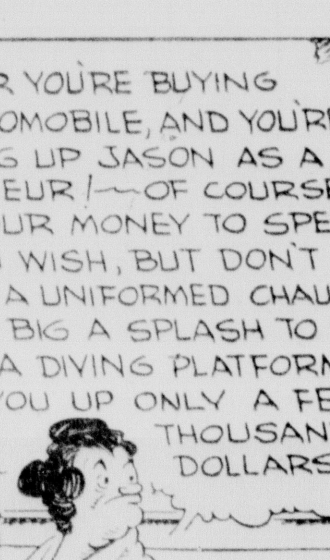 R YOU'RE BUYING
OMOBILE, AND YOU'R
G UP JASON AS A
EUR!~~OF COURSE
UR MONEY TO SPE
WISH, BUT DON'T
A UNIFORMED CHAU
BIG A SPLASH TO
A DIVING PLATFORM
YOU UP ONLY A FE
THOUSAN
DOLLARS